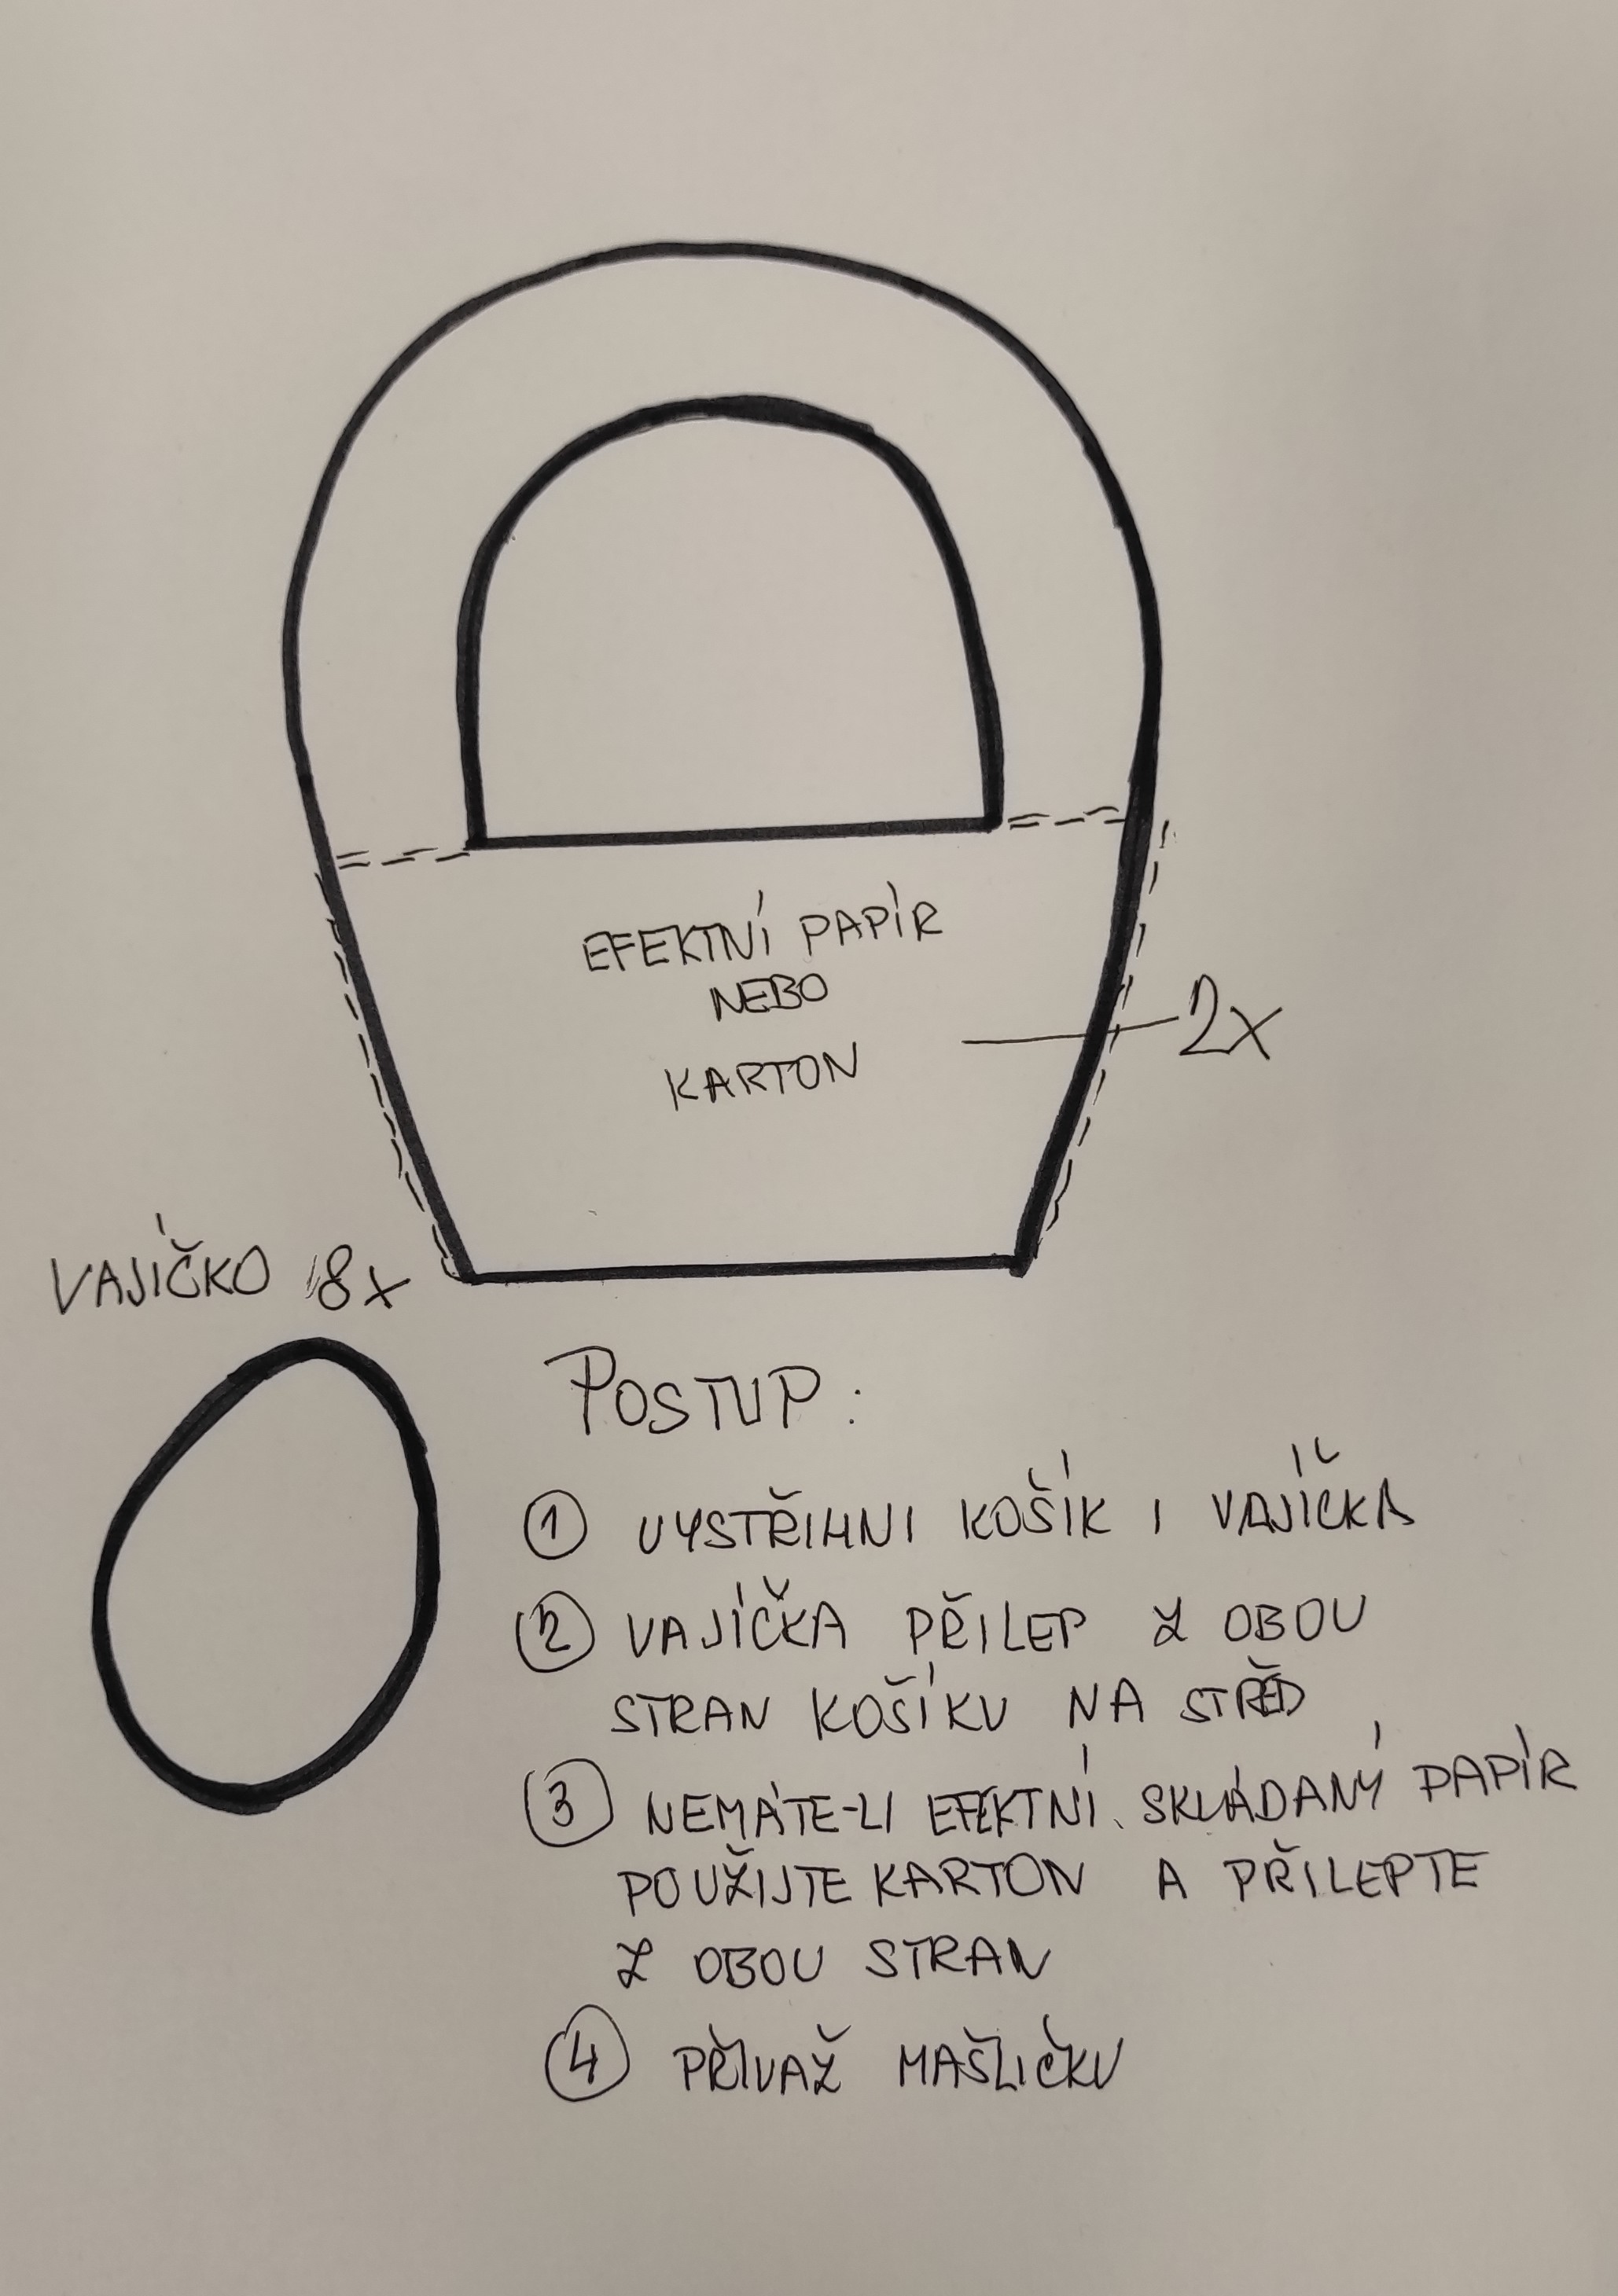 EFEKTNÍ PAPÍR
NEBO
KARTON
2x
VAJÍČKO 8x
POSTUP:
1 VYSTŘIHNI KOŠÍK I VAJÍČKA
2 VAJÍČKA PŘILEP Z OBOU
STRAN KOŠÍKU NA STŘED
3 NEMÁTE-LI EFEKTNÍ SKLÁDANÝ PAPÍR
POUŽIJTE KARTON A PŘILEPTE
Z OBOU STRAN
4 PŘIVAŽ MAŠLIČKU